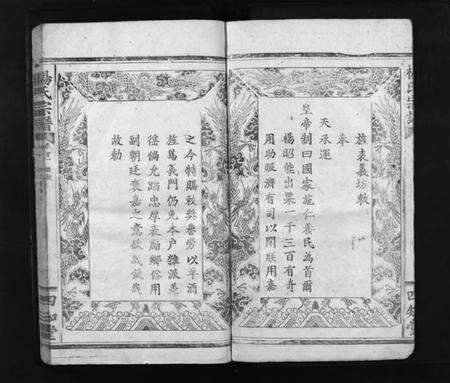 旌表義坊敕
奉
天承運
皇帝制曰國家施仁養民為首爾
楊昭能出粟一千三百有奇
用助賑濟有司以聞朕用嘉
之今特賜敕獎勞以羊酒
旌為義門仍免本戶雜派差
徭倘尤蹈忠厚表勵鄉俗用
副朝廷褒嘉之意欽哉
故敕
楊氏宗譜
四知堂
楊氏宗譜
四知堂